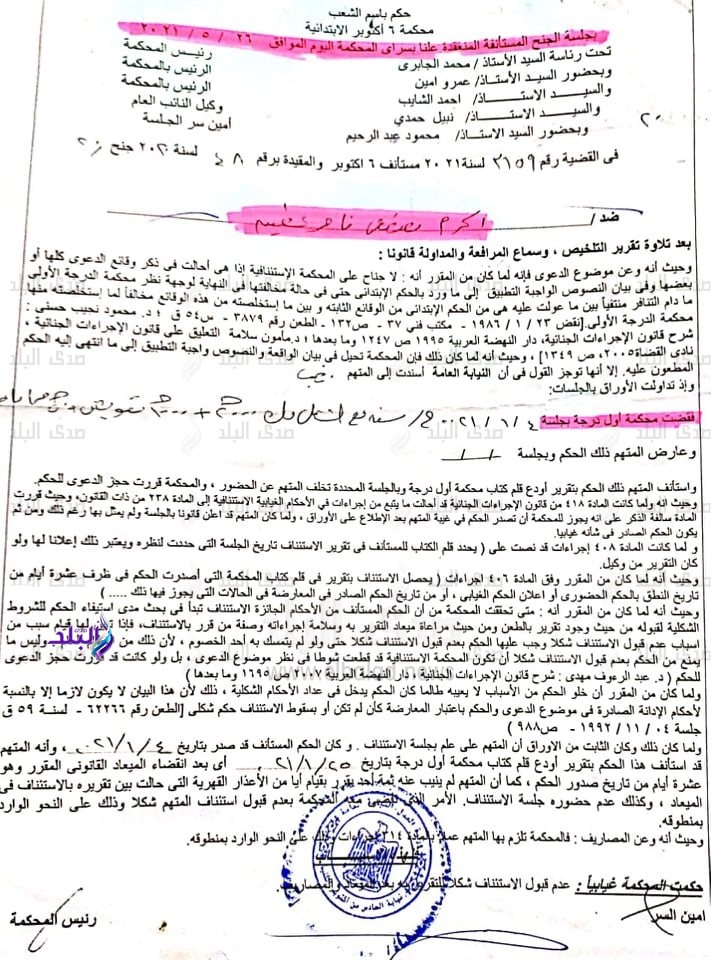 حكم باسم الشعب
محكمة ٦ أكتوبر الابتدائية
بجلسة الجنح المستأنفة المنعقدة علنا بسراى المحكمة اليوم الموافق ٢٦ / ٥ / ٢٠٢١
تحت رئاسة السيد الأستاذ/ محمد الجابرى رئيس المحكمة
وبحضور السيد الأستاذ/ عمرو امين الرئيس بالمحكمة
والسيد الاستاذ/ احمد الشايب الرئيس بالمحكمة
والسيد الاستاذ/ نبيل حمدي وكيل النائب العام
وبحضور السيد الاستاذ/ محمود عبد الرحيم أمين سر الجلسة
فى القضية رقم ٣١٥٩ لسنة ٢٠٢١ مستأنف ٦ اكتوبر والمقيدة برقم ٤٠٨ لسنة ٢٠٢٠ جنح
ضد/
بعد تلاوة تقرير التلخيص ، وسماع المرافعة والمداولة قانونا :
وحيث أنه وعن موضوع الدعوى فإنه لما كان من المقرر أنه : لا جناح على المحكمة الإستئنافية إذا هى أحالت في ذكر وقائع الدعوى كلها أو
بعضها وفي بيان النصوص الواجبة التطبيق إلى ما ورد بالحكم الإبتدائى حتى فى حالة مخالفتها فى النهاية لوجهة نظر محكمة الدرجة الأولى
ما دام التنافر منتفياً بين ما عولت عليه هى من الحكم الإبتدائى من الوقائع الثابته و بين ما إستخلصته من هذه الوقائع مخالفاً لما إستخلصته منها
محكمة الدرجة الأولى.[نقض ٢٣ / ١ / ١٩٨٦ - مكتب فني ٣٧ - ص١٣٢ - الطعن رقم ٣٨٧٩ - س٥٤ ق ؛ د. محمود نجيب حسنى :
شرح قانون الإجراءات الجنائية، دار النهضة العربية ١٩٩٥ ص ١٢٤٧ وما بعدها ؛ د.مأمون سلامة التعليق على قانون الإجراءات الجنائية ،
نادى القضاة٢٠٠٥، ص ١٣٤٩] ، وحيث أنه لما كان ذلك فإن المحكمة تحيل فى بيان الواقعة والنصوص واجبة التطبيق إلى ما انتهى إليه الحكم
المطعون عليه. إلا أنها توجز القول فى أن النيابة العامة أسندت إلى المتهم
وإذ تداولت الأوراق بالجلسات:
فقضت محكمة أول درجة بجلسة ٤ / ١ / ٢٠٢١
وعارض المتهم ذلك الحكم وبجلسة
واستأنف المتهم ذلك الحكم بتقرير أودع قلم كتاب محكمة أول درجة وبالجلسة المحددة تخلف المتهم عن الحضور ، والمحكمة قررت حجز الدعوى للحكم.
وحيث انه ولما كانت المادة ٤١٨ من قانون الإجراءات الجنائية قد أحالت ما يتبع من إجراءات في الأحكام الغيابية الاستئنافية إلى المادة ٢٣٨ من ذات القانون، وحيث قررت
المادة سالفة الذكر على انه يجوز للمحكمة أن تصدر الحكم في غيبة المتهم بعد الإطلاع على الأوراق ، ولما كان المتهم قد اعلن قانونا بالجلسة ولم يمثل بها رغم ذلك ومن ثم
يكون الحكم الصادر في شأنه غيابيا.
و لما كانت المادة ٤٠٨ إجراءات قد نصت على ( يحدد قلم الكتاب للمستأنف فى تقرير الاستئناف تاريخ الجلسة التى حددت لنظره ويعتبر ذلك إعلانا لها ولو
كان التقرير من وكيل.
وحيث أنه لما كان من المقرر وفق المادة ٤٠٦ اجراءات ( يحصل الاستئناف بتقرير فى قلم كتاب المحكمة التى أصدرت الحكم فى ظرف عشرة أيام من
تاريخ النطق بالحكم الحضورى أو اعلان الحكم الغيابى ، أو من تاريخ الحكم الصادر فى المعارضة فى الحالات التى يجوز فيها ذلك ..... )
وحيث أنه لما كان من المقرر أنه : متى تحققت المحكمة من أن الحكم المستأنف من الأحكام الجائزة الاستئناف تبدأ فى بحث مدى استيفاء الحكم للشروط
الشكلية لقبوله من حيث وجود تقرير بالطعن ومن حيث مراعاة ميعاد التقرير به وسلامة إجراءاته وصفة من قرر بالاستئناف، فإذا قيام سبب من
اسباب عدم قبول الاستئناف شكلا وجب عليها الحكم بعدم قبول الاستئناف شكلا حتى ولو لم يتمسك به أحد الخصوم ، لأن ذلك من وليس ما
يمنع من الحكم بعدم قبول الاستئناف شكلا أن تكون المحكمة الاستئنافية قد قطعت شوطا فى نظر موضوع الدعوى ، بل ولو كانت قد قررت حجز الدعوى
للحكم ( د. عبد الرءوف مهدى : شرح قانون الإجراءات الجنائية ، دار النهضة العربية ٢٠٠٧ ص ١٦٩٥ وما بعدها )
ولما كان من المقرر أن خلو الحكم من الأسباب لا يعيبه طالما كان الحكم يدخل فى عداد الأحكام الشكلية ، ذلك لأن هذا البيان لا يكون لازما إلا بالنسبة
لأحكام الإدانة الصادرة فى موضوع الدعوى والحكم باعتبار المعارضة كأن لم تكن أو بسقوط الاستئناف حكم شكلى [الطعن رقم ٦٢٢٦٦ - لسنة ٥٩ ق
جلسة ٠٤ / ١١ / ١٩٩٢ - ص٩٨٨)
ولما كان ذلك وكان الثابت من الاوراق أن المتهم على علم بجلسة الاستئناف . و كان الحكم المستأنف قد صدر بتاريخ ٤ / ١ / ٢٠٢١ ، وأنه المتهم
قد استأنف هذا الحكم بتقرير أودع قلم كتاب محكمة أول درجة بتاريخ ٢٥ / ١ / ٢٠٢١ أى بعد انقضاء الميعاد القانونى المقرر وهو
عشرة أيام من تاريخ صدور الحكم ، كما أن المتهم لم ينيب عنه ثمة أحد يقرر بقيام أيا من الأعذار القهرية التى حالت بين تقريره بالاستئناف فى
الميعاد ، وكذلك عدم حضوره جلسة الاستئناف. الأمر الذى تقضى معه المحكمة بعدم قبول استئناف المتهم شكلا وذلك على النحو الوارد
بمنطوقه.
وحيث أنه وعن المصاريف : فالمحكمة تلزم بها المتهم عملا بالمادة ٣١٤ إجراءات على النحو الوارد بمنطوقه.
حكمت المحكمة غيابياً : عدم قبول الاستئناف شكلا للتقرير به بعد الميعاد والمصاريف.
امين السر رئيس المحكمة
صدى البلد
www.elbalad.news